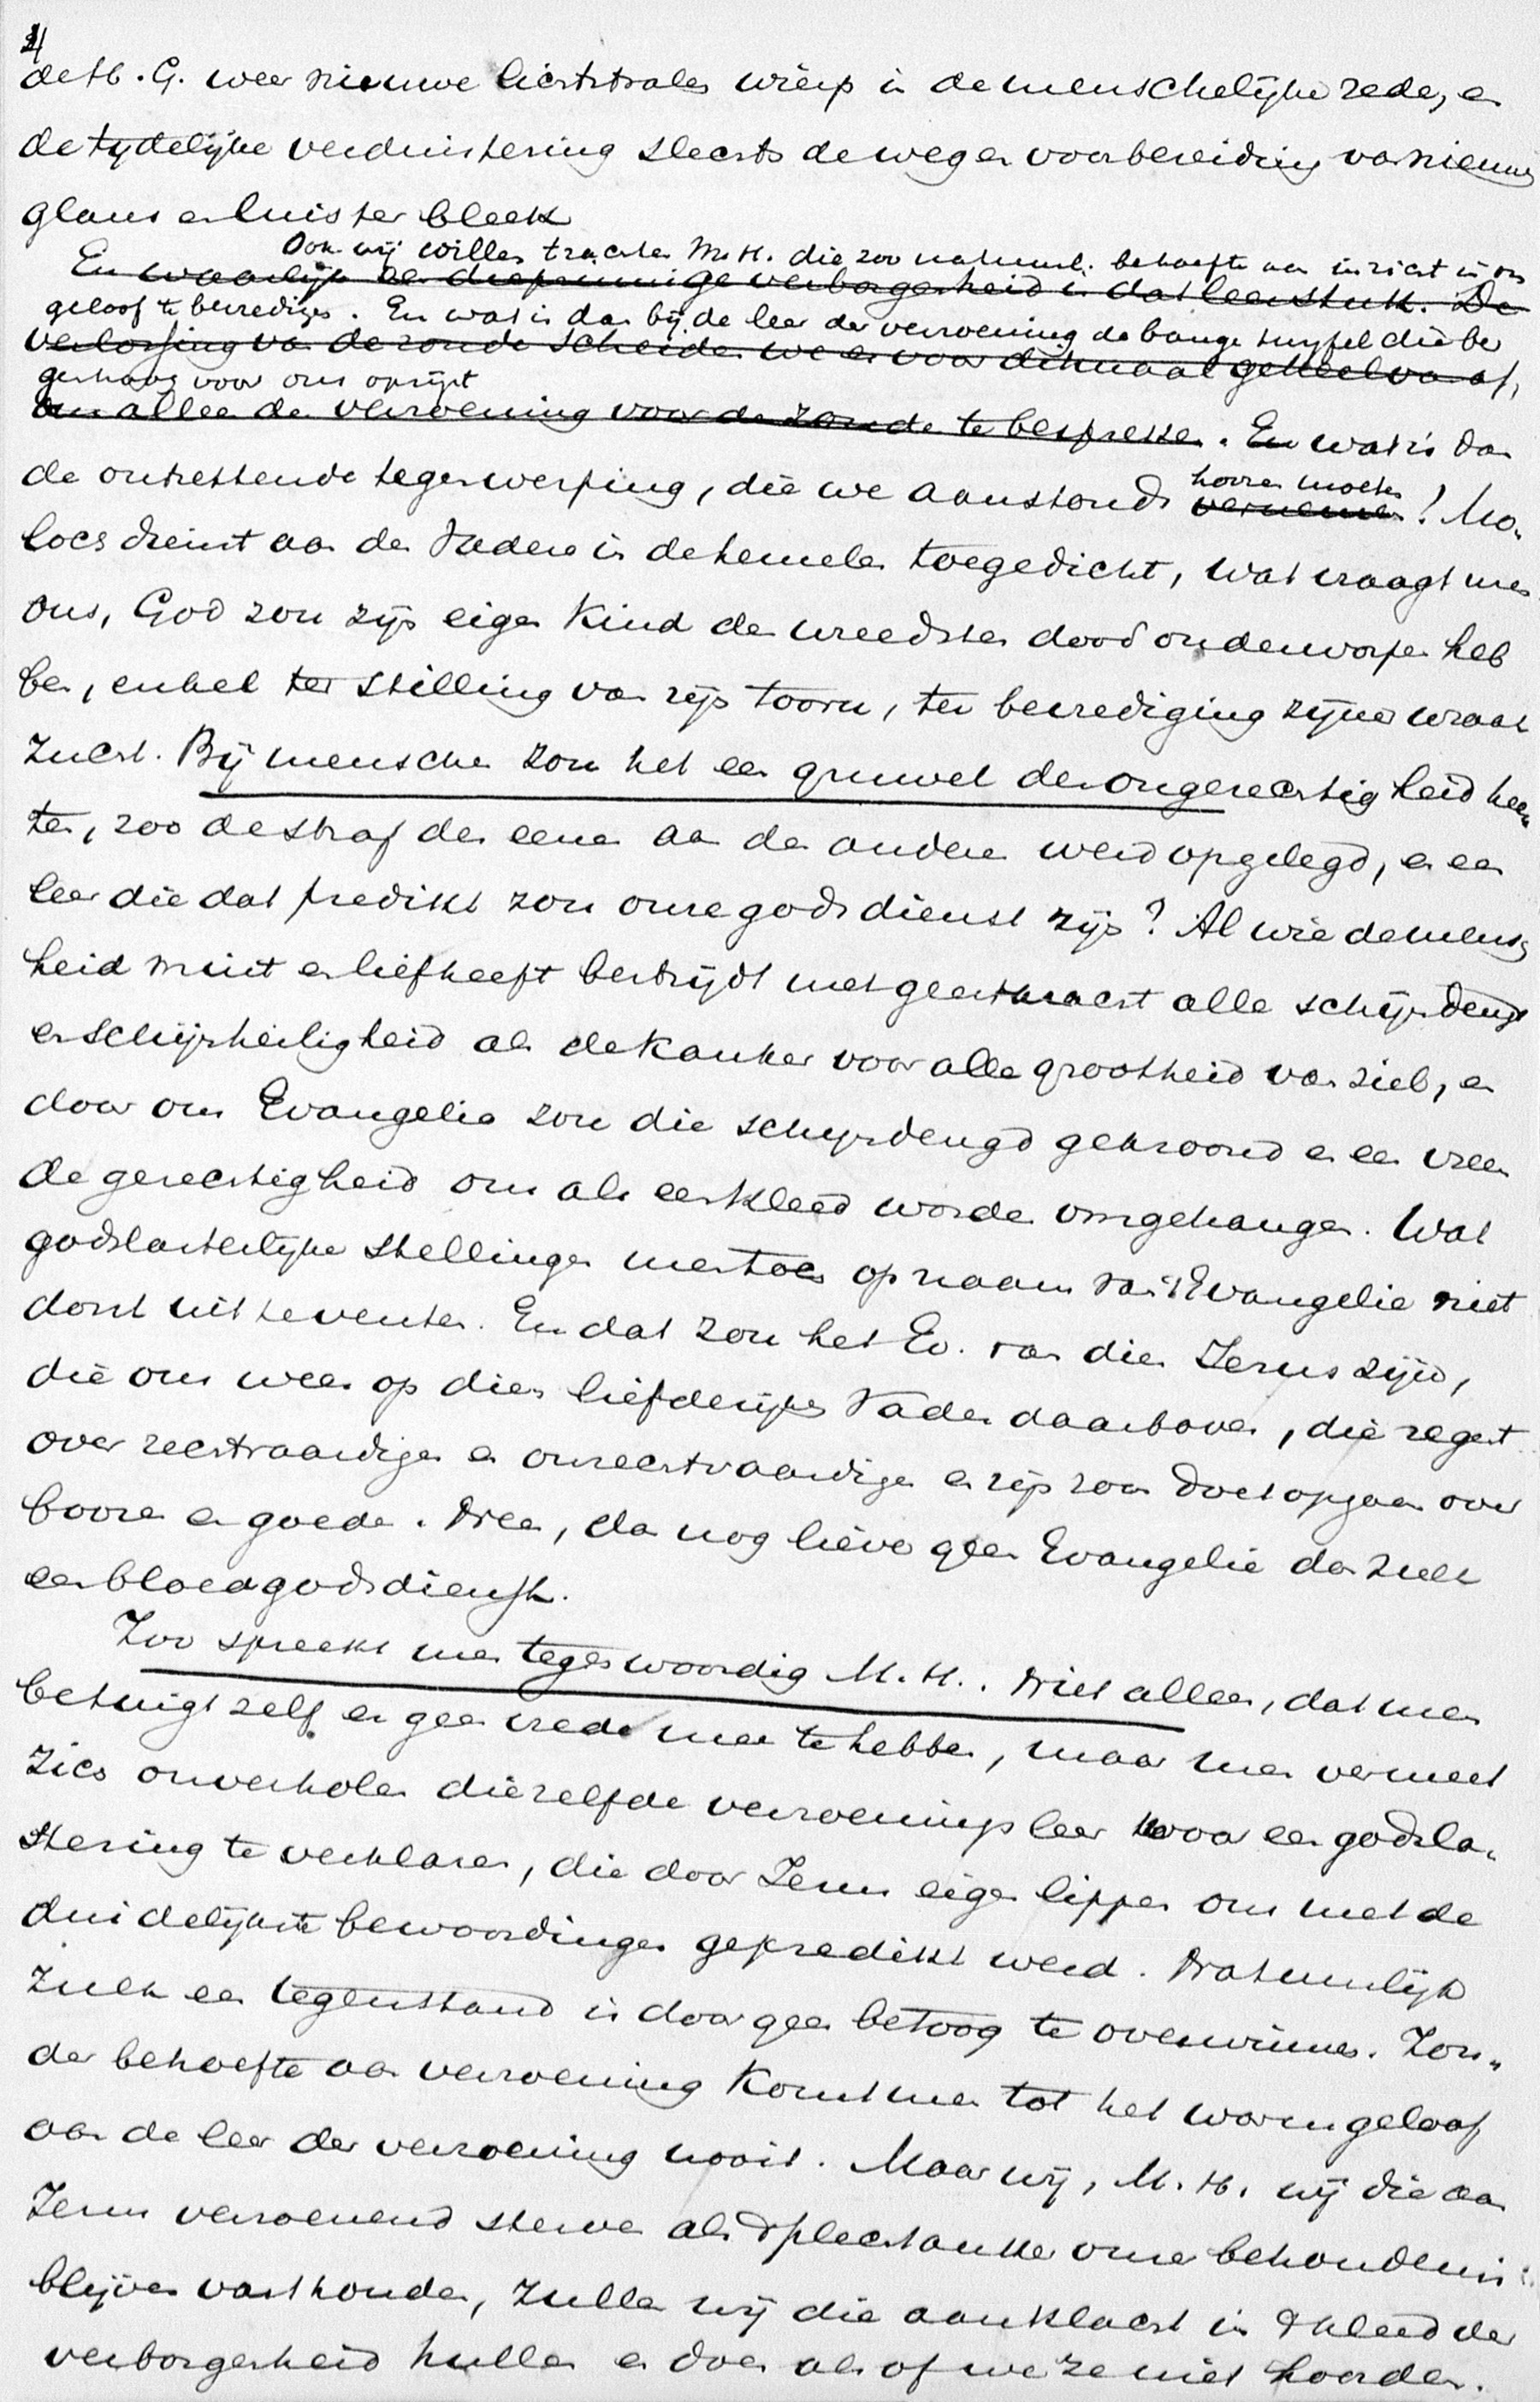 4
de H. G. weer nieuwe lichtstralen wierp in de menschelijke rede, en
de tydelijke verduistering slechts de weg en voorbereiding van nieuwe
glans en luister bleek
Ook wij willen trachten M. H. die zoo natuurl. behoefte aan inzicht in ons
En waarlijk een diepzinnige verborgenheid is dat leerstuk. De
geloof te bevredigen. En wat is dan bij de leer der verzoening de bange twyfel die be
verlossing van de zonde scheiden we er voor ditmaal geheel van af,
geshalve voor ons oprijst
om alleen de verzoening voor de zonde te bespreken. En wat is dan
de ontzettende tegenwerping, die we aanstonds hooren moeten
vernemen! Mo-
lochs dienst aan den Vader in de hemelen toegedicht, wat vraagt men
ons, God zou zijn eigen kind den wreedsten dood onderworpen heb
ben, enkel ter stilling van zijn toorn, ter bevrediging zijner wraak
zucht. Bij menschen zou het een gruwel der ongerechtigheid hee
ten, zoo de straf des eenen aan den anderen werd opgelegd, en een
leer die dat predikt zou onze godsdienst zijn? Al wie de mensch
heid mint en liefheeft bestrijdt met geestkracht alle schijndeugd
en schijnheiligheid als de kanker voor alle grootheid van ziel, en
door ons Evangelie zou die schijndeugd gekroond en een vreem
de gerechtigheid ons als eerkleed worden omgehangen. Wat
godslasterlijke stellingen men toch op naam van 't Evangelie niet
dorst uit te venten. En dat zou het Ev. van dien Jezus zijn,
die ons wees op dien liefderijken Vader daarboven, die regent
over rechtvaardigen en onrechtvaardigen en zijn zon doet opgaan over
boozen en goeden. Neen, dan nog liever geen Evangelie dan zulk
een bloedgodsdienst.
Zoo spreekt men tegenwoordig M. H.. Niet alleen, dat men
betuigt zelf er geen vrede mee te hebben, maar men vermeet
zich onverholen diezelfde verzoeningsleer voor een godsla-
stering te verklaren, die door Jezus eigen lippen ons met de
duidelijkste bewoordingen gepredikt werd. Natuurlijk
zulk een tegenstand is door geen betoog te overwinnen. Zon-
der behoefte aan verzoening komt men tot het warm geloof
aan de leer der verzoening nooit. Maar wij, M. H. wij die aan
Jezus verzoenend sterven als 't plechtanker onzer behoudenis
blijven vasthouden, zullen wij die aanklacht in 't kleed der
verborgenheid hullen en doen alsof we ze niet hoorden.